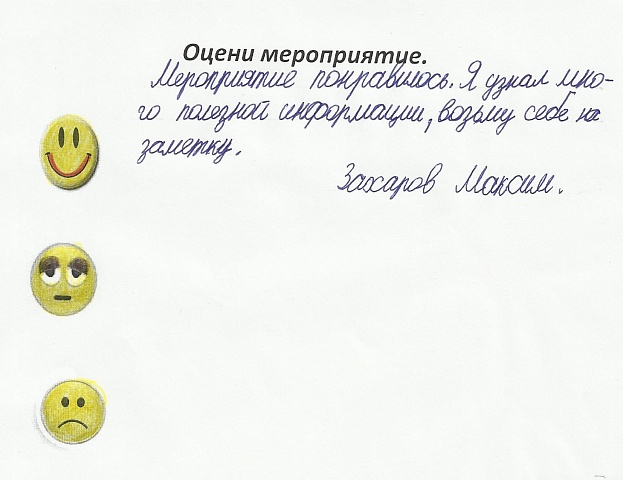 Оцени мероприятие.
Мероприятие понравилось. Я узнал мно-
го полезной информации, возьму себе на
заметку.
Захаров Максим.